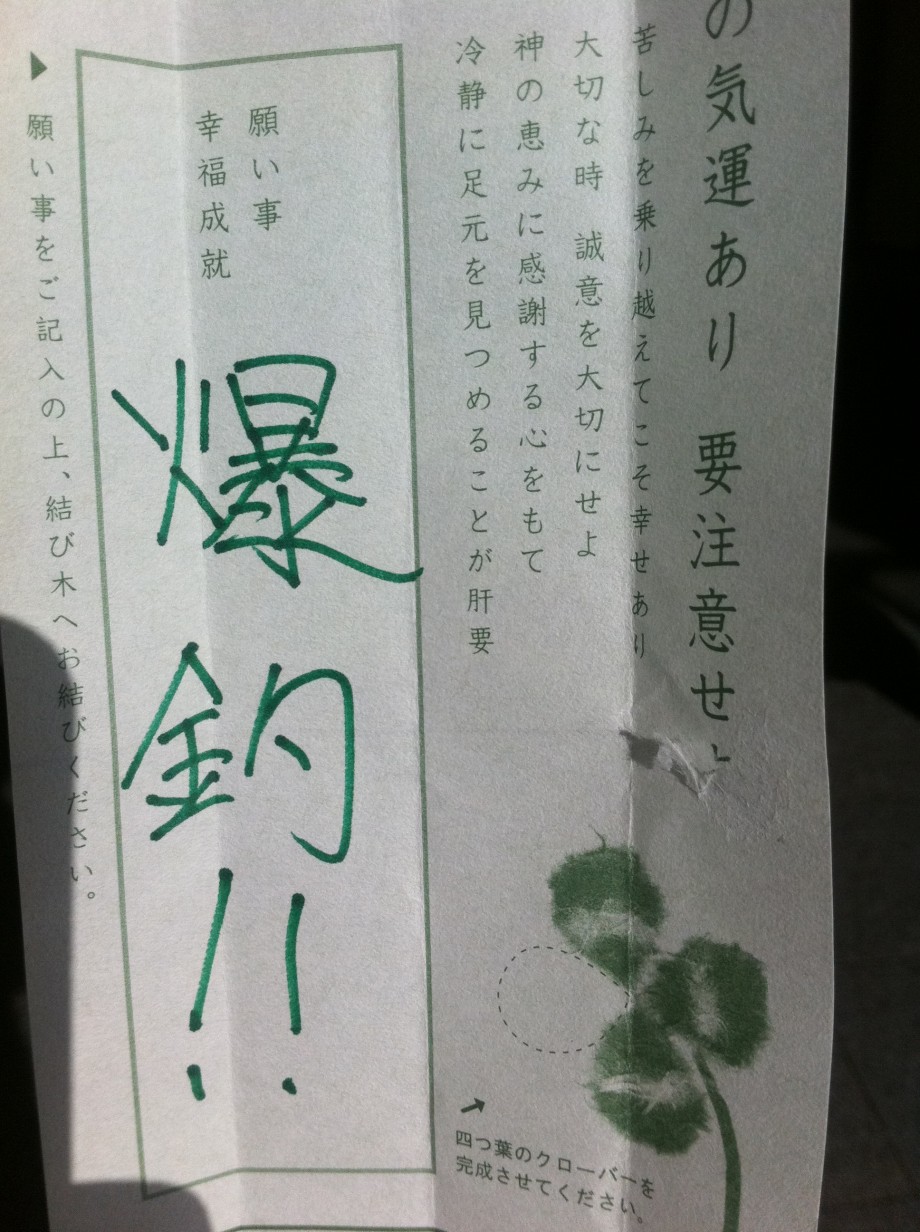 の気運あり 要注意せよ
苦しみを乗り越えてこそ幸せあり
大切な時 誠意を大切にせよ
神の恵みに感謝する心をもて
冷静に足元を見つめることが肝要
願い事
幸福成就
爆釣!!
▶願い事をご記入の上、結び木へお結びください。
四つ葉のクローバーを
完成させてください。